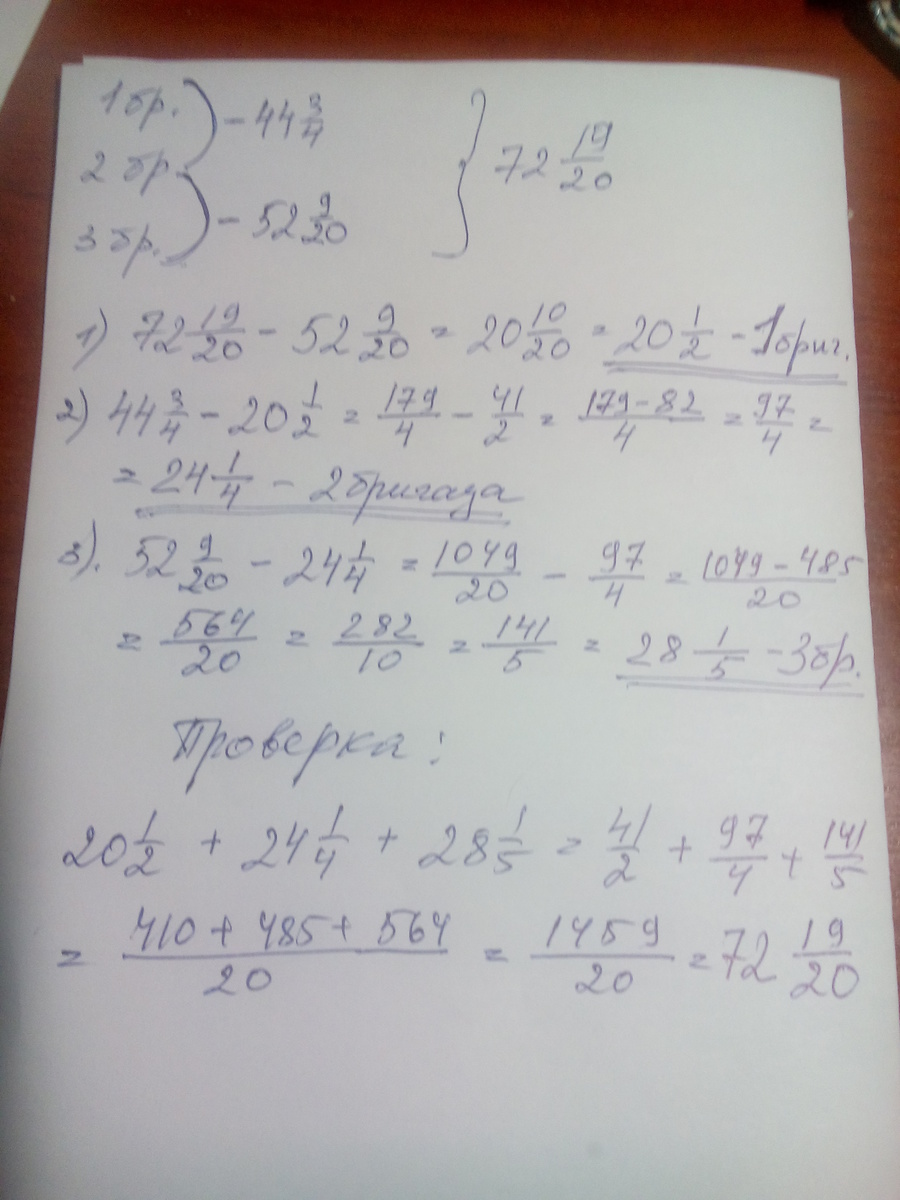 1 бр. ) - 44 3/4
2 бр
3 бр. ) - 52 9/20
} 72 19/20
1) 72 19/20 - 52 9/20 = 20 10/20 = 20 1/2 - 1 бриг.
2) 44 3/4 - 20 1/2 = 179/4 - 41/2 = (179-82)/4 = 97/4 =
= 24 1/4 - 2 бригада
3). 52 9/20 - 24 1/4 = 1049/20 - 97/4 = (1049-485)/20
= 564/20 = 282/10 = 141/5 = 28 1/5 - 3 бр.
Проверка:
20 1/2 + 24 1/4 + 28 1/5 = 41/2 + 97/4 + 141/5
= (410 + 485 + 564)/20 = 1459/20 = 72 19/20